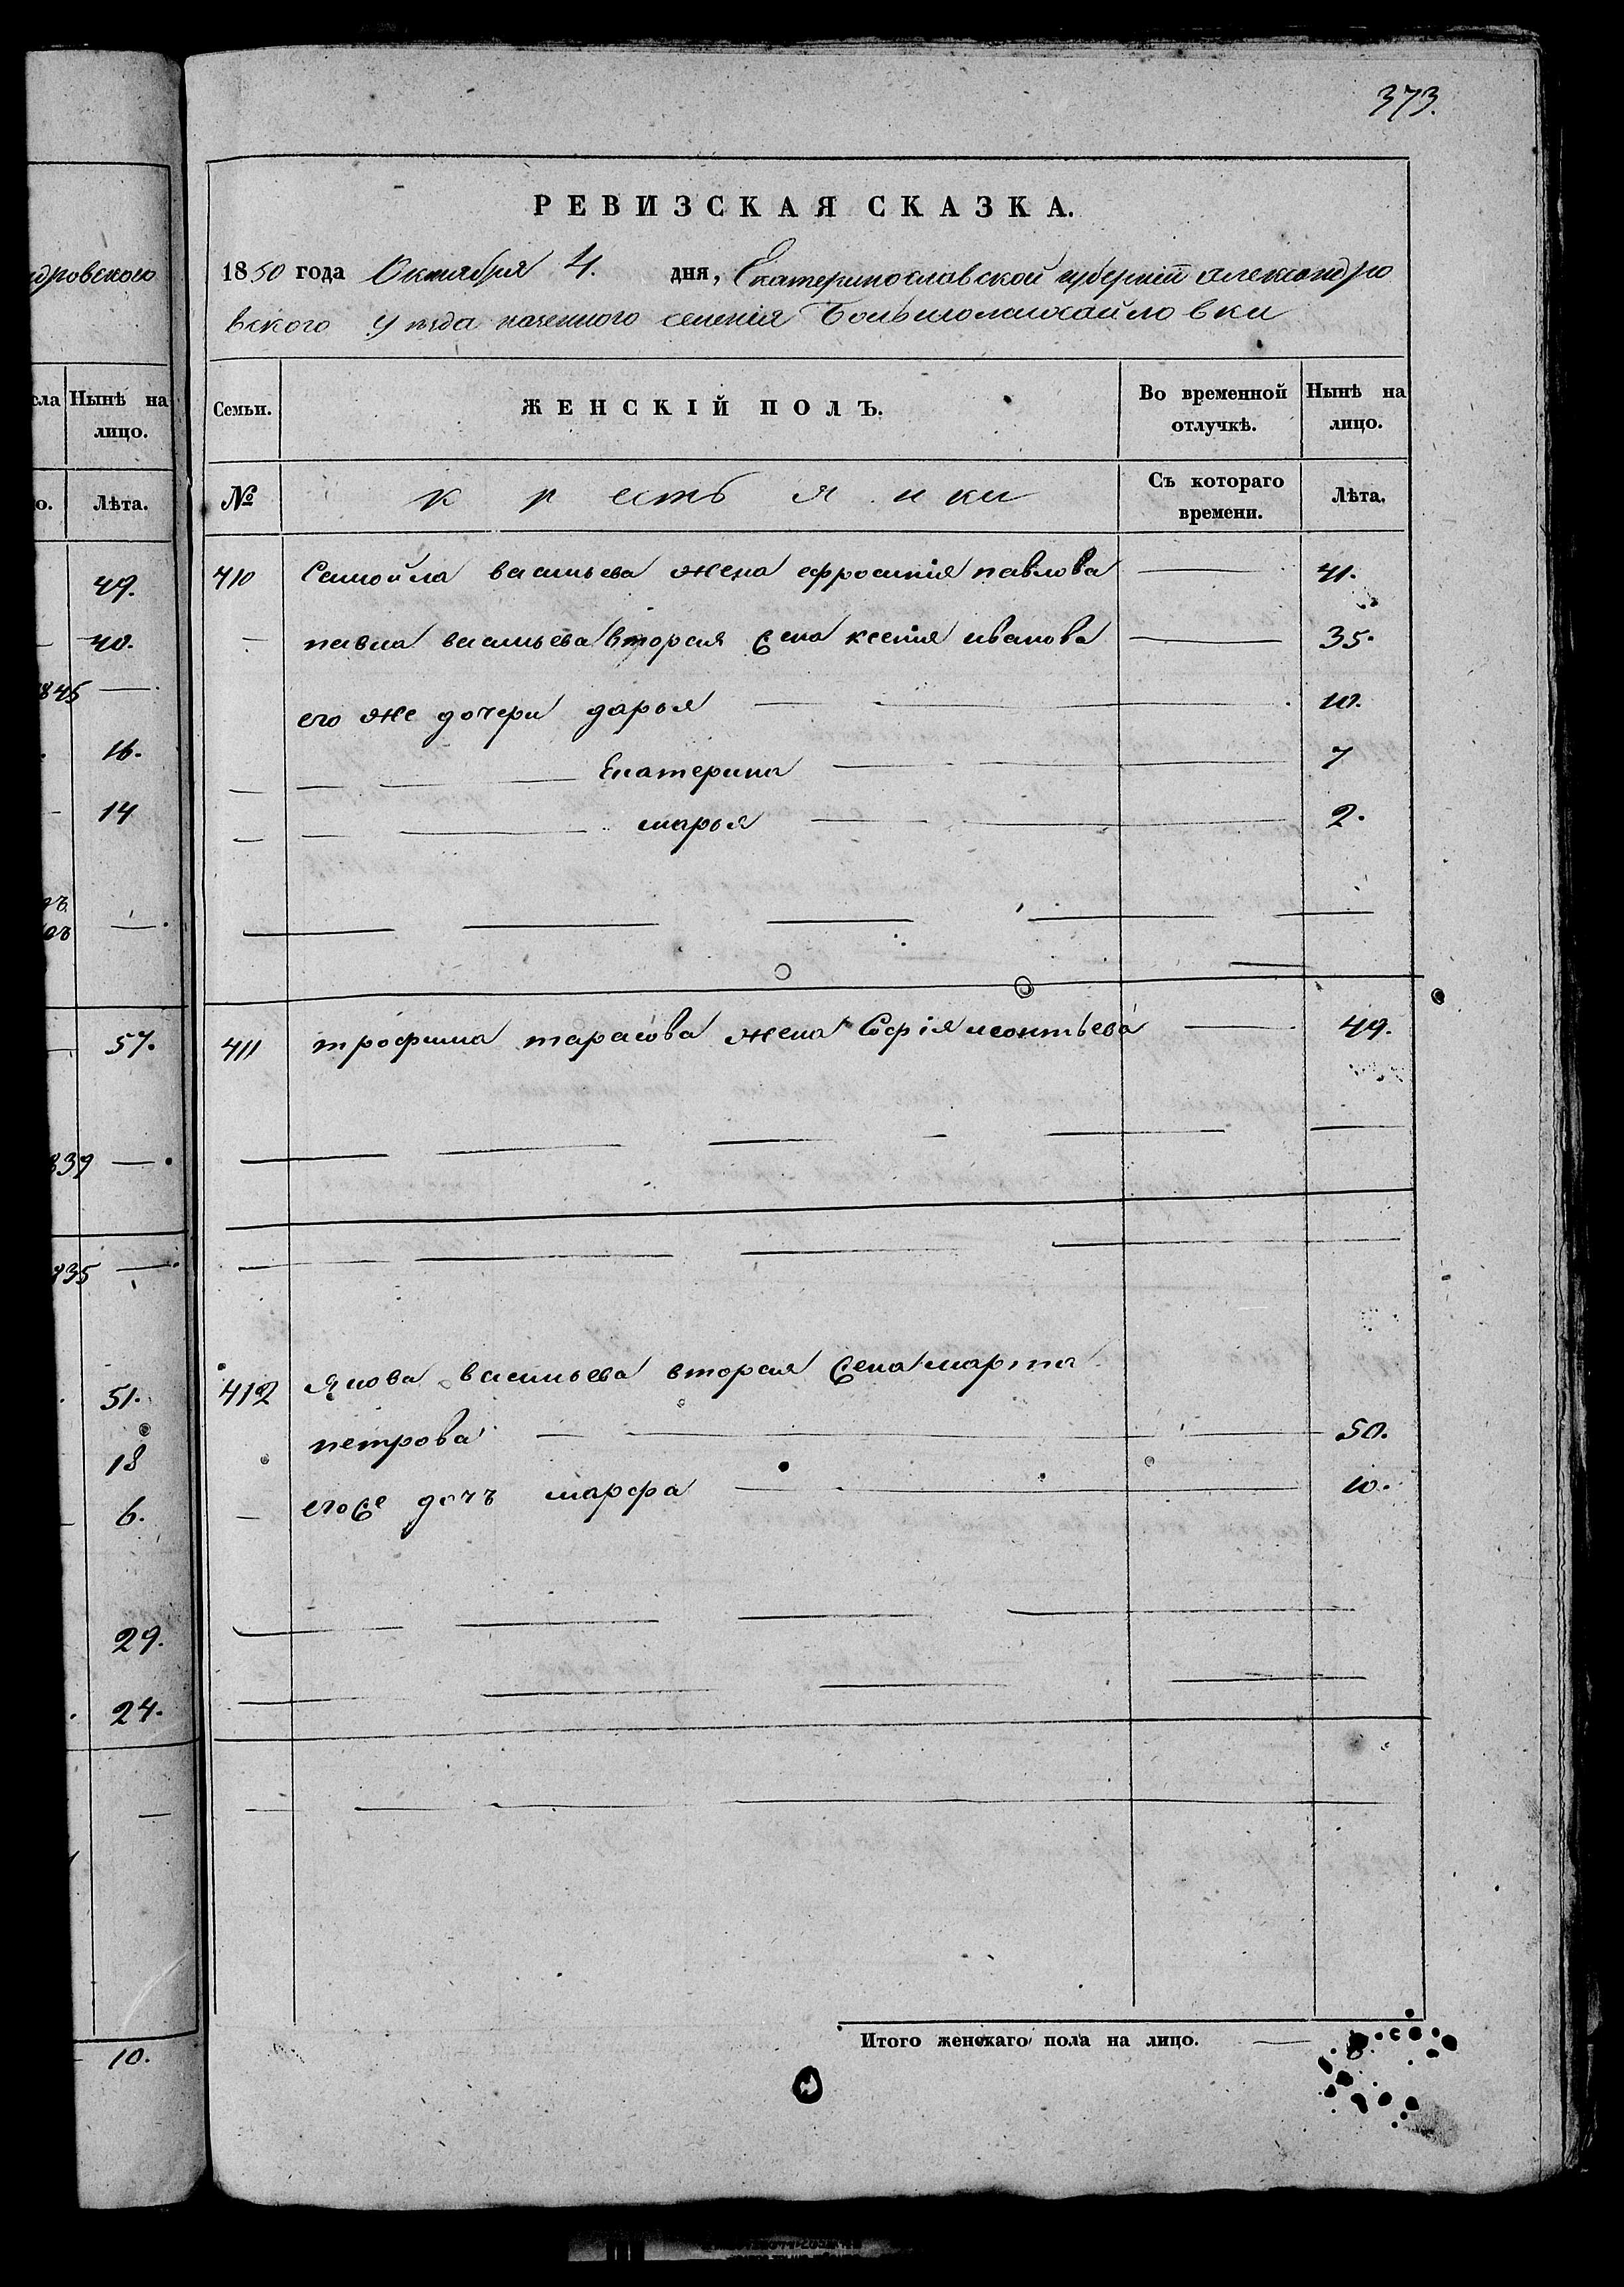 373.
дровского
РЕВИЗСКАЯ СКАЗКА.
1850 года Октября 4. дня, Екатеринославской губерніи александро
вского уезда казенного селенія Большомихайловки
сла
Нынѣ на лицо.
о.
Лѣта.
49.
40.
1845 —
16.
14
57.
839 —
835 —
51.
18
6.
29.
24.
10.
Семьи.
ЖЕНСКІЙ ПОЛЪ.
Во временной отлучкѣ.
Нынѣ на лицо.
№
крестьянки
Съ котораго времени.
Лѣта.
410 Самойла васильева жена ефросинія павлова — 41.
— павла васильева вторая жена ксенія иванова — 35.
его же дочери дарья — 10.
— Екатерина — 7
— марья — 2.
411 трофима тарасова жена Софія леонтьева — 49.
412 Якова васильева вторая жена марта
петрова — 50.
— его же дочъ марфа — 10.
Итого женскаго пола на лицо. — 8.